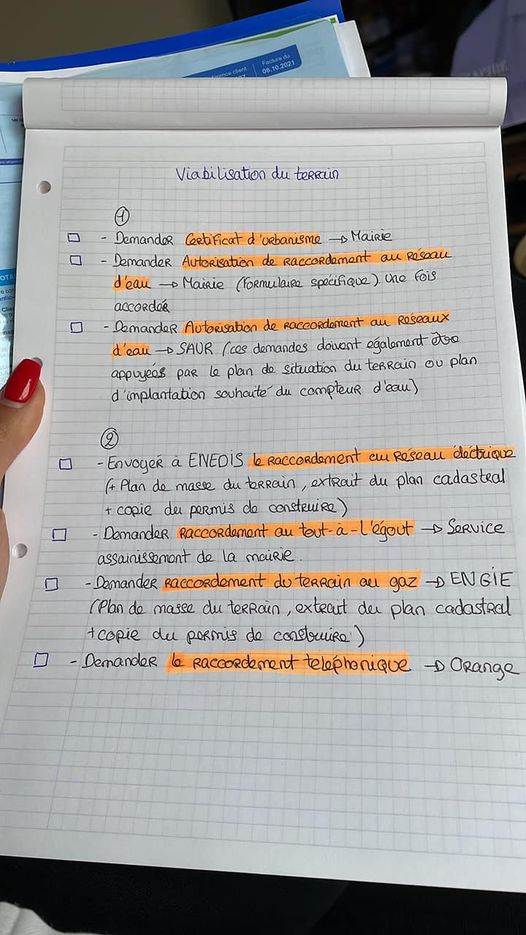 Facture du
08.10.2021
Viabilisation du terrain
1
- Demander Certificat d'urbanisme → Mairie
- Demander Autorisation de raccordement au réseau
d'eau → Mairie (formulaire spécifique). Une fois
accordée
- Demander Autorisation de raccordement au réseaux
d'eau → SAUR (ces demandes doivent également être
appuyées par le plan de situation du terrain ou plan
d'implantation souhaité du compteur d'eau)
2
- Envoyer à ENEDIS le raccordement au réseau électrique
(+ Plan de masse du terrain, extrait du plan cadastral
+ copie du permis de construire)
- Demander raccordement au tout-à-l'égout → Service
assainissement de la mairie.
- Demander raccordement du terrain au gaz → ENGIE
(Plan de masse du terrain, extrait du plan cadastral
+ copie du permis de construire)
- Demander le raccordement telephonique → Orange